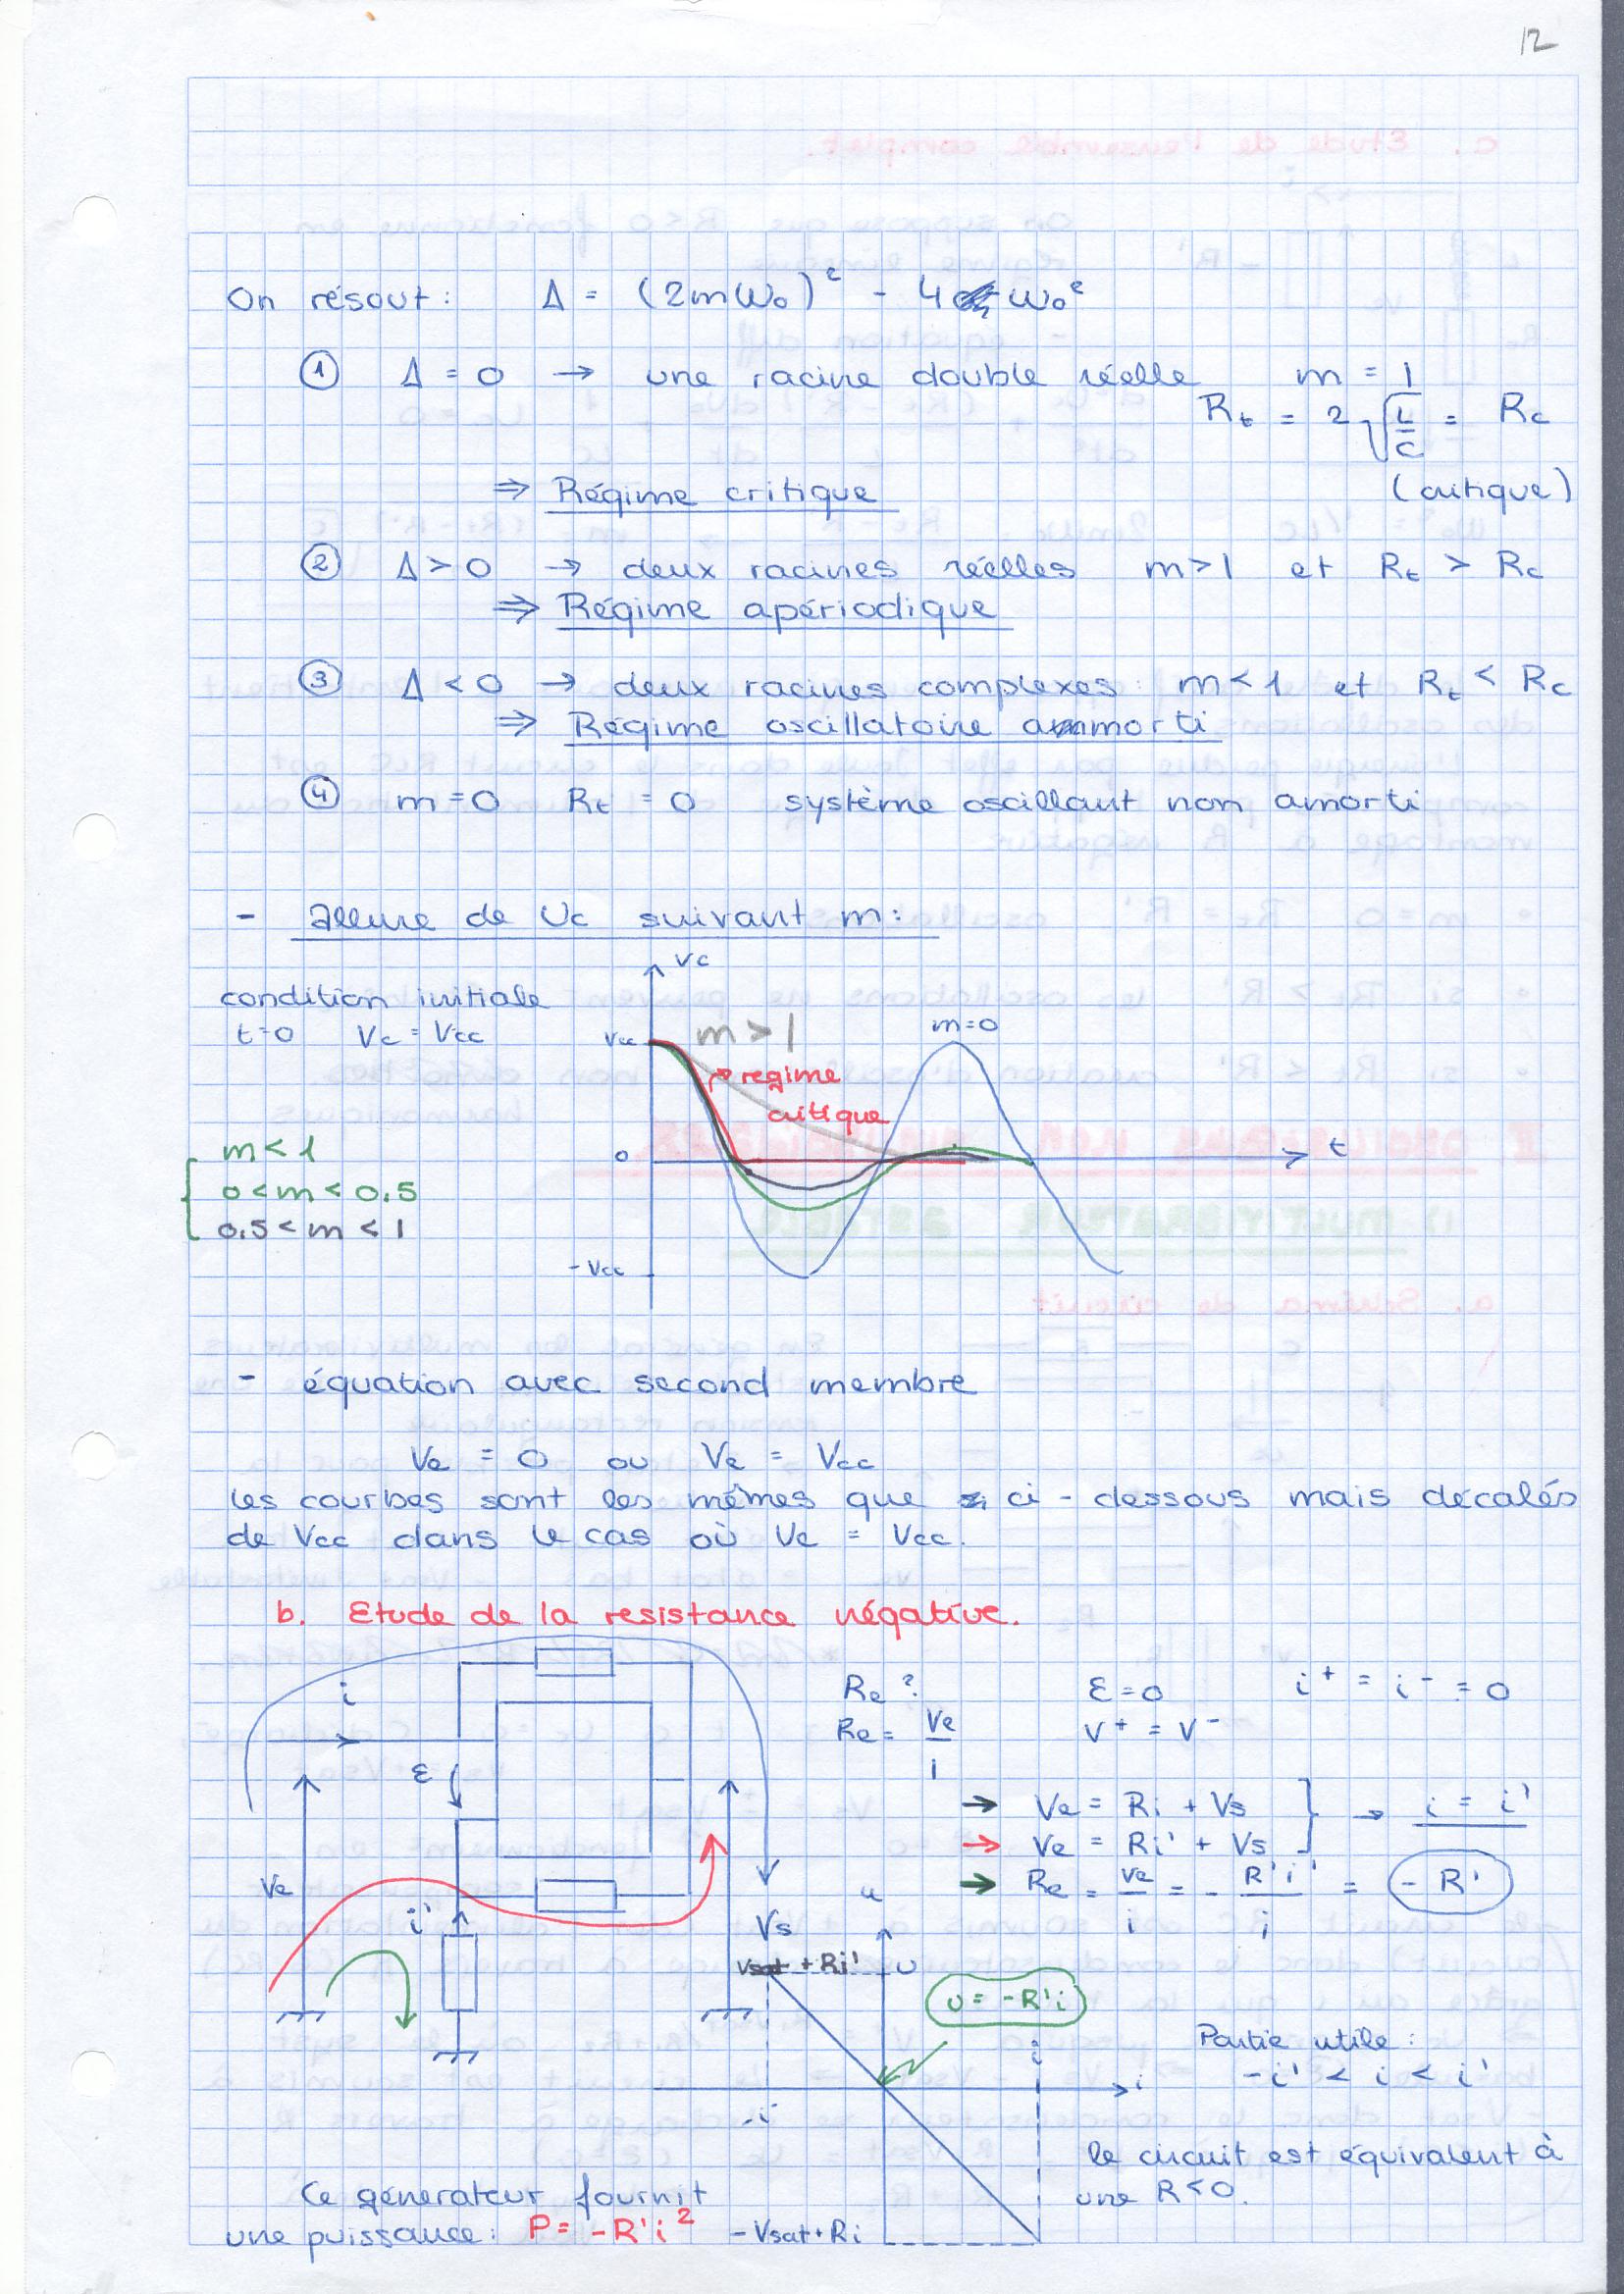 12
On résout : Δ = (2mω₀)² - 4 ω₀²
① Δ = 0 → une racine double réelle m = 1
Rt = 2√(L/C) = Rc
⇒ Régime critique (critique)
② Δ > 0 → deux racines réelles m > 1 et Rt > Rc
⇒ Régime apériodique
③ Δ < 0 → deux racines complexes : m < 1 et Rt < Rc
⇒ Régime oscillatoire ammorti
④ m = 0 Rt = 0 système oscillant non amorti
- Allure de Uc suivant m :
condition initiale
t=0 Vc = Vcc
Vc
Vcc
m > 1
m=0
regime
critique
0
t
m < 1
0 < m < 0.5
0.5 < m < 1
-Vcc
- équation avec second membre
Ve = 0 ou Ve = Vcc
les courbes sont les mêmes que ci-dessous mais décalés
de Vcc dans le cas où Ve = Vcc.
b. Etude de la resistance négative.
i
ε
Ve
i'
Vs
Re ? ε=0 i⁺ = i⁻ = 0
Re = Ve/i V⁺ = V⁻
→ Ve = Ri + Vs } → i = i'
→ Ve = Ri' + Vs
→ Re = Ve/i = - R'i'/i = -R'
u
Vsat + Ri' U
U = -R'i
i
-i
i
Partie utile :
-i' < i < i'
le circuit est équivalent à
une R<0.
Ce génerateur fournit
une puissance : P = -R'i²
-Vsat+Ri